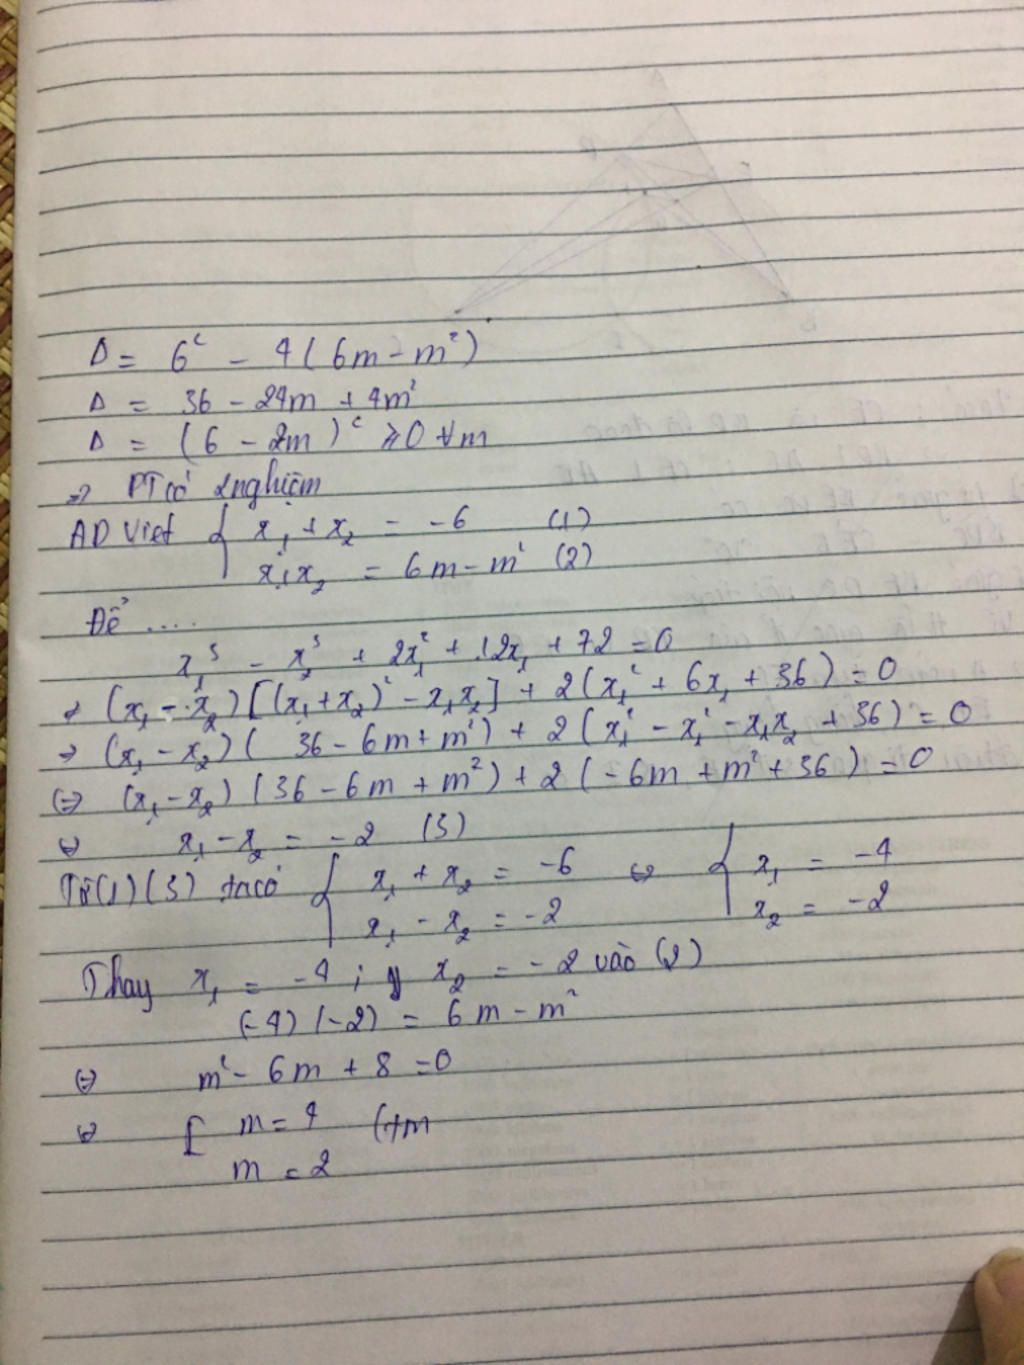 Δ = 6² - 4(6m - m²)
Δ = 36 - 24m + 4m²
Δ = (6 - 2m)² ≥ 0 ∀m
⇒ PT có 2 nghiệm
AD Viet { x₁ + x₂ = -6 (1)
x₁x₂ = 6m - m² (2)
Để ....
x₁³ - x₂³ + 2x₁² + 12x₁ + 72 = 0
⇒ (x₁ - x₂)[(x₁+x₂)² - x₁x₂] + 2(x₁² + 6x₁ + 36) = 0
⇒ (x₁ - x₂)(36 - 6m + m²) + 2(x₁² - x₁² - x₁x₂ + 36) = 0
⇔ (x₁ - x₂)(36 - 6m + m²) + 2(-6m + m² + 36) = 0
⇔ x₁ - x₂ = -2 (3)
Từ (1)(3) ta có { x₁ + x₂ = -6 ⇔ { x₁ = -4
x₁ - x₂ = -2 x₂ = -2
Thay x₁ = -4 ; x₂ = -2 vào (2)
(-4)(-2) = 6m - m²
⇔ m² - 6m + 8 = 0
⇔ [ m = 4 (tm
m = 2